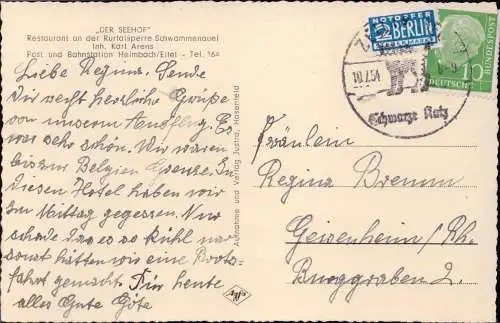 „DER SEEHOF"
Restaurant an der Rurtalsperre Schwammenauel
Inh. Karl Arens
Post und Bahnstation Heimbach/Eifel - Tel. 164
Liebe Regina. Sende
Dir recht herzliche Grüße
von unserem Ausflug. Es
war sehr schön. Wir waren
bis zur Belgien Grenze. In
diesen Hotel haben wir
zu Mittag gegessen. Nur
schade das es so kühl war
sonst hätten wir eine Boots-
fahrt gemacht. Für heute
alles Gute Göta
Aufnahme und Verlag Justra, Hasenfeld
Agfa
NOTOPFER
2 BERLIN
STEUERMARKE
DEUTSCHE BUNDESPOST
10
10.7.54
Schwarze Katz
Fräulein
Regina Bremm
Geisenheim/Rh.
Burggraben 2.